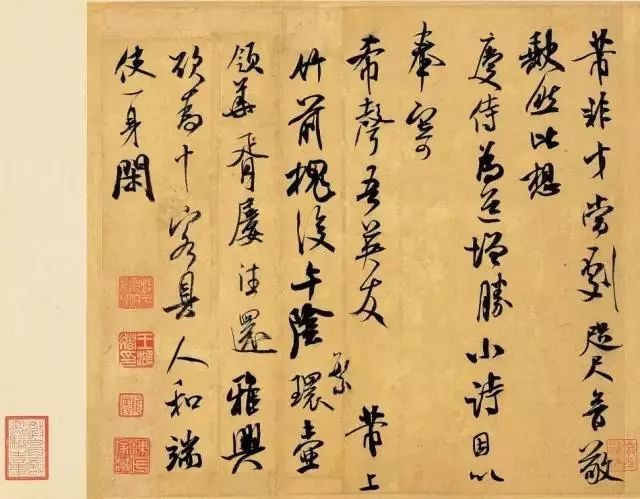 芾非才當劇咫尺音敬
歉然比想
慶侍為道增勝小詩因以
奉寄
希聲吾英友 芾上
竹前槐後午陰環壺
繁
領華胥屢往還雅興
欲為十客具人和端
使一身閑